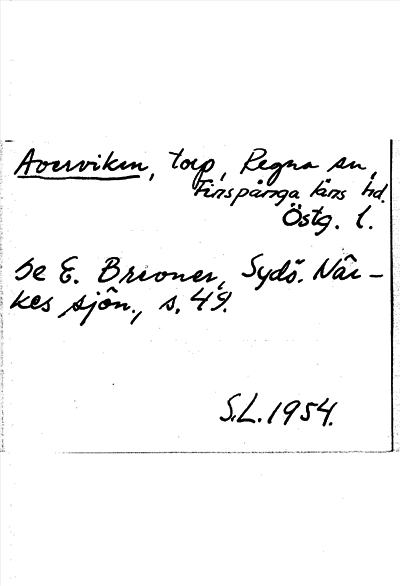 Averviken, torp, Regna sn,
Finspånga läns hd.
Östg. l.
se E. Brevner, Sydö. När-
kes sjön., s. 49.
S.L. 1954.